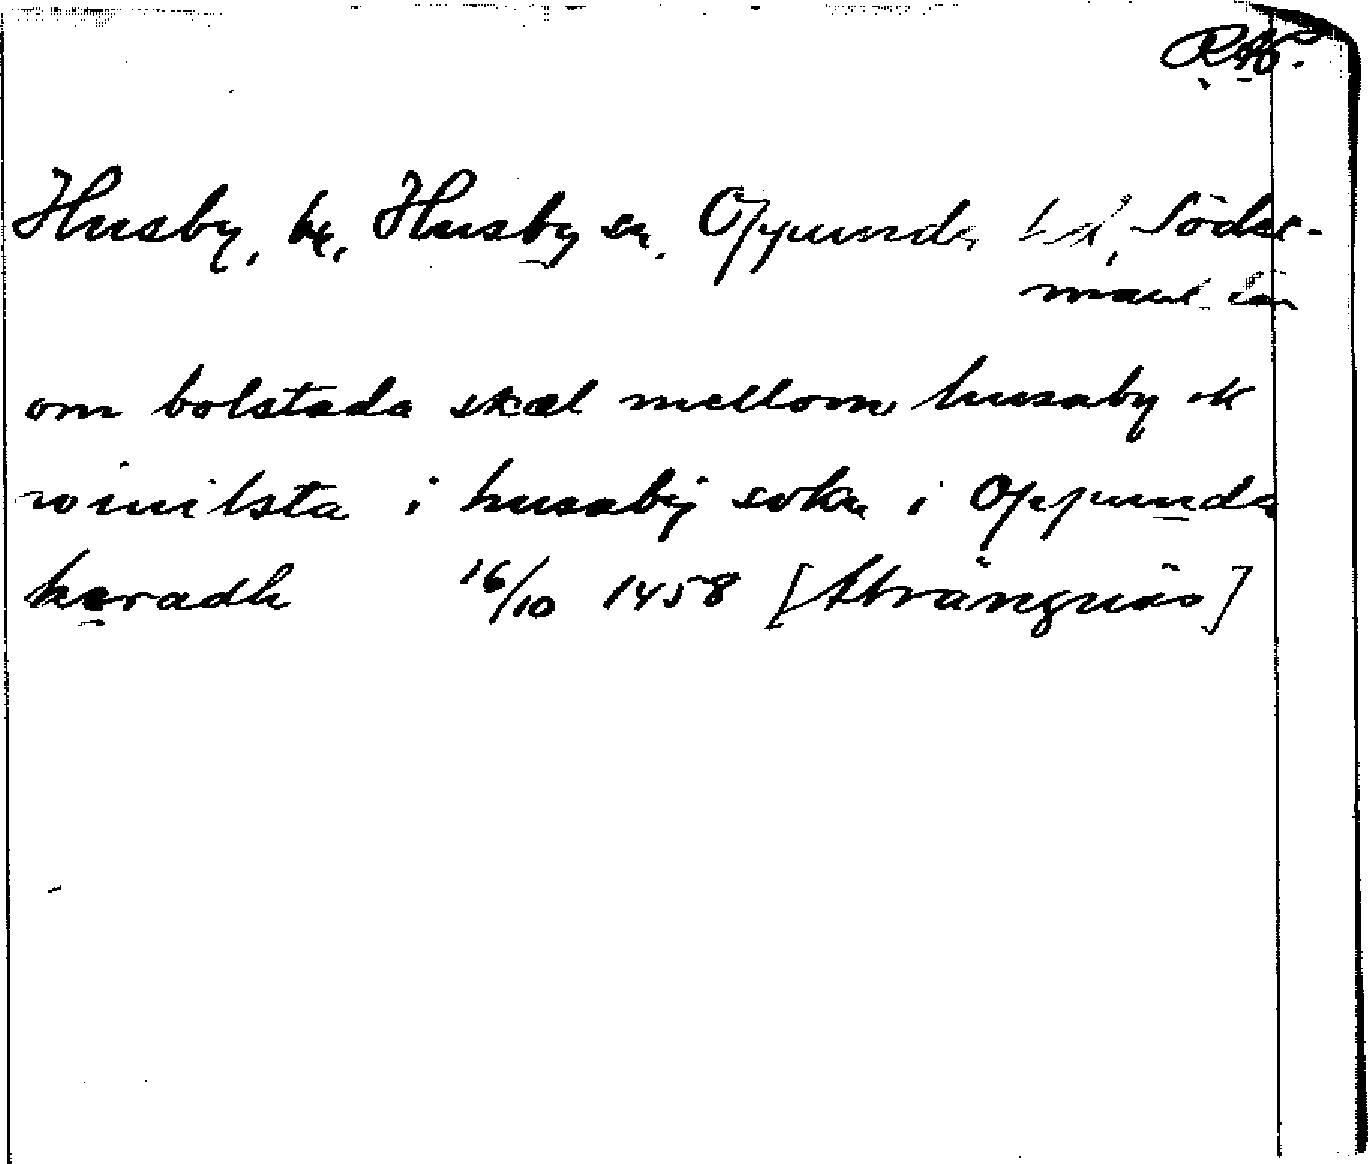 RAP.
Husby, by, Husby sn. Oppunda hd, Söder-
manl. län
om bolstada skæl mellom husaby ok
winilsta i husabij sokn i Oppunda
hæradh 16/10 1458 [Strängnäs]